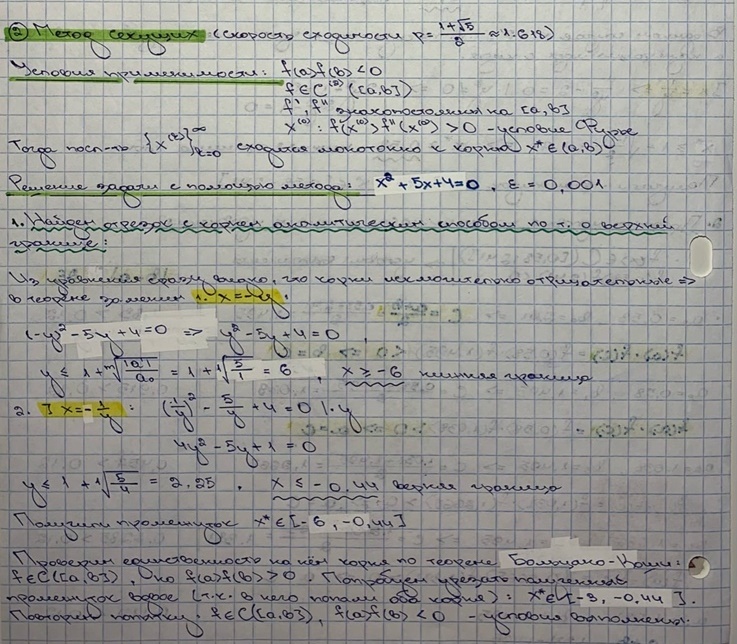 ② Метод секущих (скорость сходимости p = (1+√5)/2 ≈ 1.618)
Условия применимости: f(a)f(b) < 0
f ∈ C⁽²⁾([a,b])
f', f'' знакопостоянны на [a,b]
x⁽⁰⁾: f(x⁽⁰⁾) f''(x⁽⁰⁾) > 0 - условие Фурье
Тогда посл-ть {x⁽ᵏ⁾}∞ₖ₌₀ сходится монотонно к корню x* ∈ (a,b)
Решение задачи с помощью метода: x² + 5x + 4 = 0, ε = 0,001
1. Найдем отрезок с корнем аналитическим способом по т. о верхней
границе:
Из уравнения сразу видно, что корни исключительно отрицательные =>
в теореме заменим 1. x = -y:
(-y)² - 5y + 4 = 0 => y² - 5y + 4 = 0,
y ≤ 1 + ᵐ√(|a|/a₀) = 1 + ¹√(5/1) = 6, x ≥ -6 нижняя граница
2. ] x = -1/y: (1/y)² - 5/y + 4 = 0 | · y
4y² - 5y + 1 = 0
y ≤ 1 + ¹√(5/4) = 2,25. x ≤ -0,44 верхняя граница
Получили промежуток x* ∈ [-6, -0,44]
Проверим единственность на нём корня по теореме Больцано-Коши:
f ∈ C([a,b]), но f(a)f(b) > 0. Попробуем урезать полученный
промежуток вдвое (т.к. в него попали оба корня): x* ∈ [-3, -0,44].
Повторим попытку: f ∈ C([a,b]), f(a)f(b) < 0 - условия выполнены.